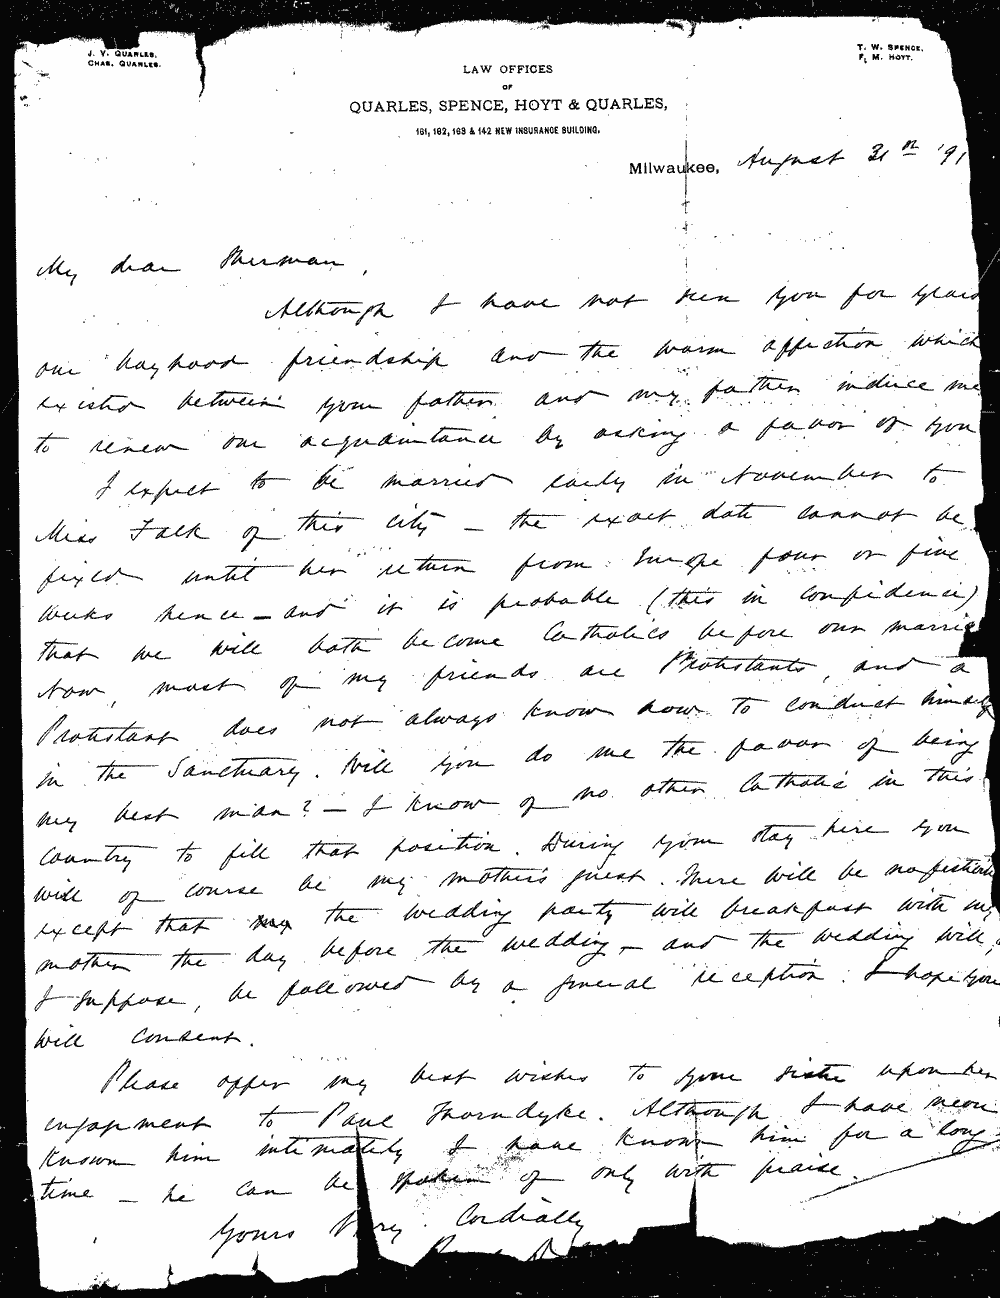 J. V. QUARLES.
CHAS. QUARLES.
T. W. SPENCE.
F. M. HOYT.
LAW OFFICES
OF
QUARLES, SPENCE, HOYT & QUARLES,
161, 162, 163 & 142 NEW INSURANCE BUILDING.
Milwaukee, August 31 '91
My dear Sherman,
Although I have not seen you for years
our boyhood friendship and the warm affection which
existed between your father and my father induce me
to renew our acquaintance by asking a favor of you
I expect to be married early in November to
Miss Falk of this city – the exact date cannot be
fixed until her return from Europe four or five
weeks hence – and it is probable (this in confidence)
that we will both become Catholics before our
Now, most of my friends are Protestants, and a
Protestant does not always know how to conduct himself
in the Sanctuary. Will you do me the favor of being
my best man? – I know of no other Catholic in this
country to fill that position. During your stay here you
will of course be my mother's guest. There will be no
except that the wedding party will breakfast with my
mother the day before the wedding – and the wedding will,
I suppose, be followed by a general reception. I hope you
will consent.
Please offer my best wishes to your sister upon her
engagement to Paul Thorndyke. Although I have never
known him intimately I have known him for a long
time – he can be spoken of only with praise.
Yours Very Cordially